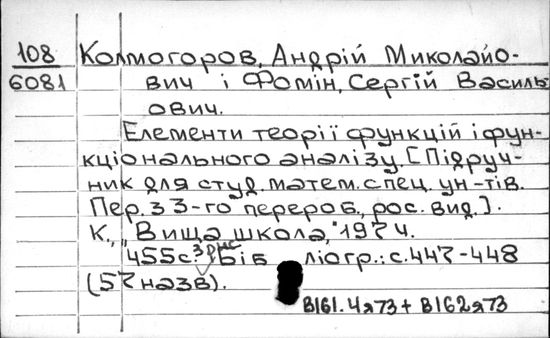 108 Колмогоров, Андрій Миколайо-
6081 вич і Фомін, Сергій Василь
ович.
Елементи теорії функцій і фун-
кціонального аналізу. [Підруч-
ник для студ. матем. спец. ун-тів.
Пер. з 3-го перероб., рос. вид.].
К., „Вища школа," 1974.
455с. з рис Біб ліогр.: с. 447-448
(57 назв).
В161.4я73 + В162я73